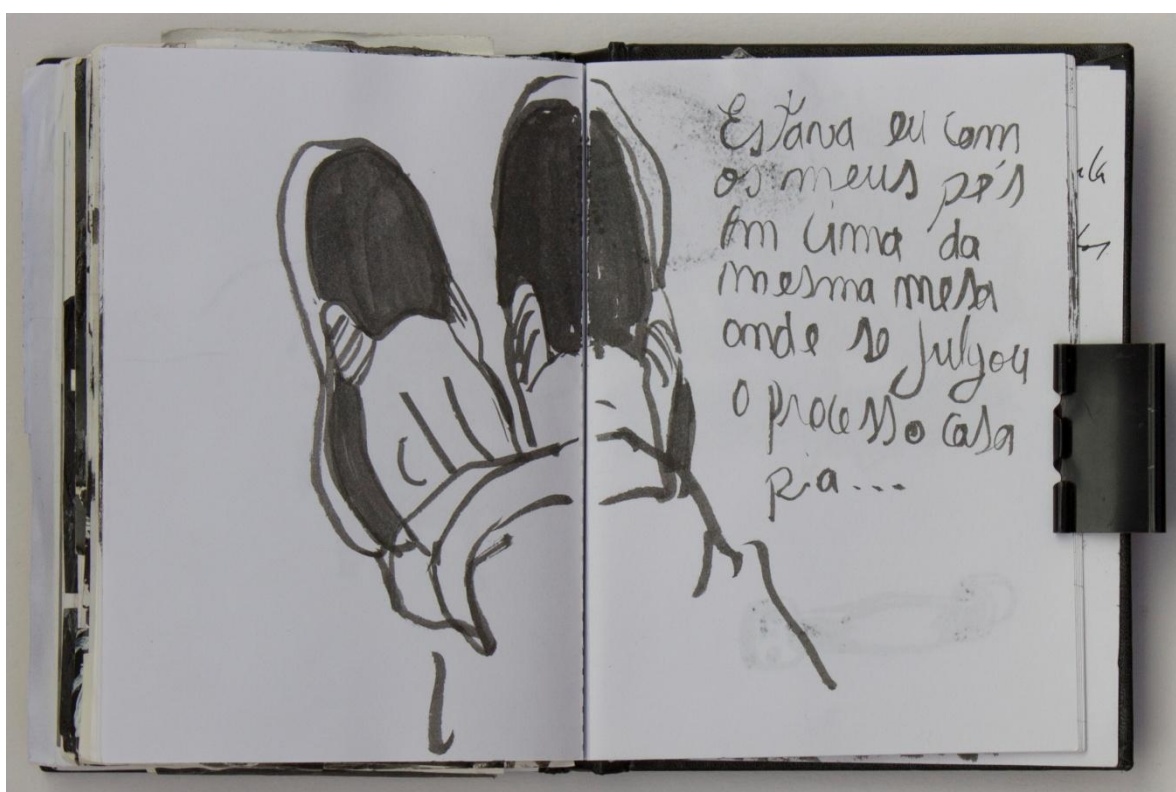 Estava eu com
os meus pés
em cima da
mesma mesa
onde se julgou
o processo casa
pia...